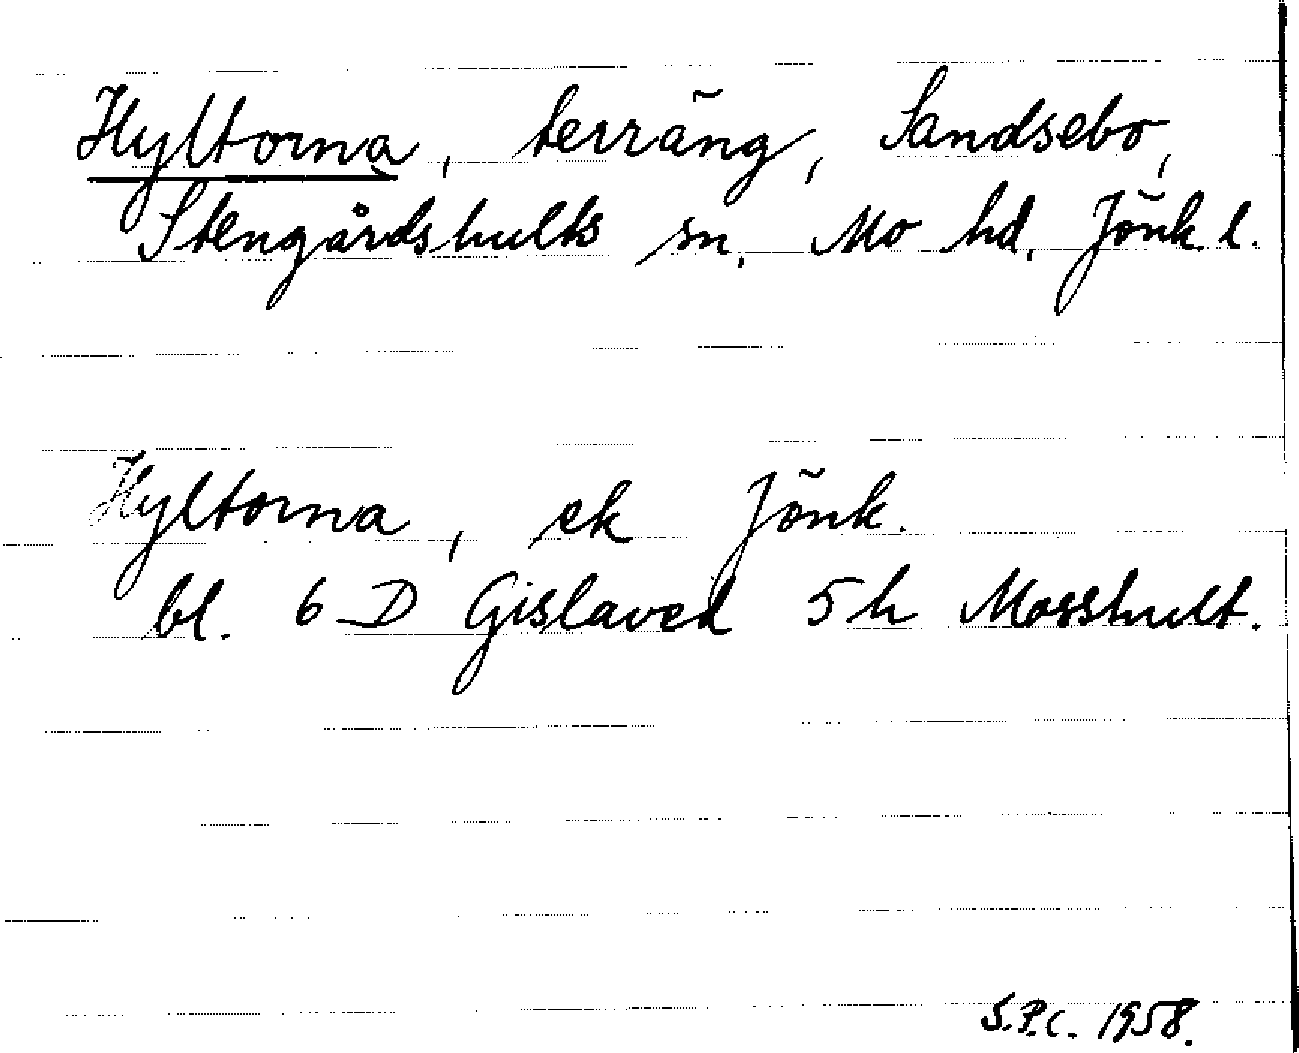 Hyltorna, terräng, Sandsebo,
Stengårdshults sn. Mo hd. Jönk. l.
Hyltorna, ek Jönk.
bl. 6 D Gislaved 5 h Mosshult.
S.P.C. 1958.